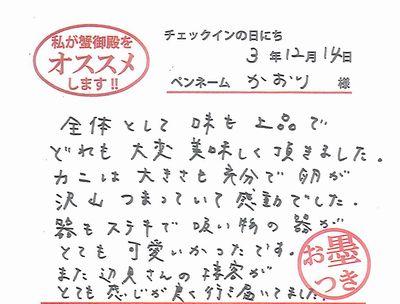 私が蟹御殿を
オススメ
します!!
チェックインの日にち
3年12月14日
ペンネーム かおり 様
全体として味も上品で
どれも大変美味しく頂きました。
カニは大きさも充分で卵が
沢山つまっていて感動でした。
器もステキで吸い物の器が
とても可愛いかったです。
また辺見さんの接客が
とても感じが良く行き届いてました。
お墨
つき